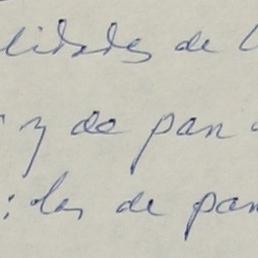 lidades de l
y de pan
: las de pan